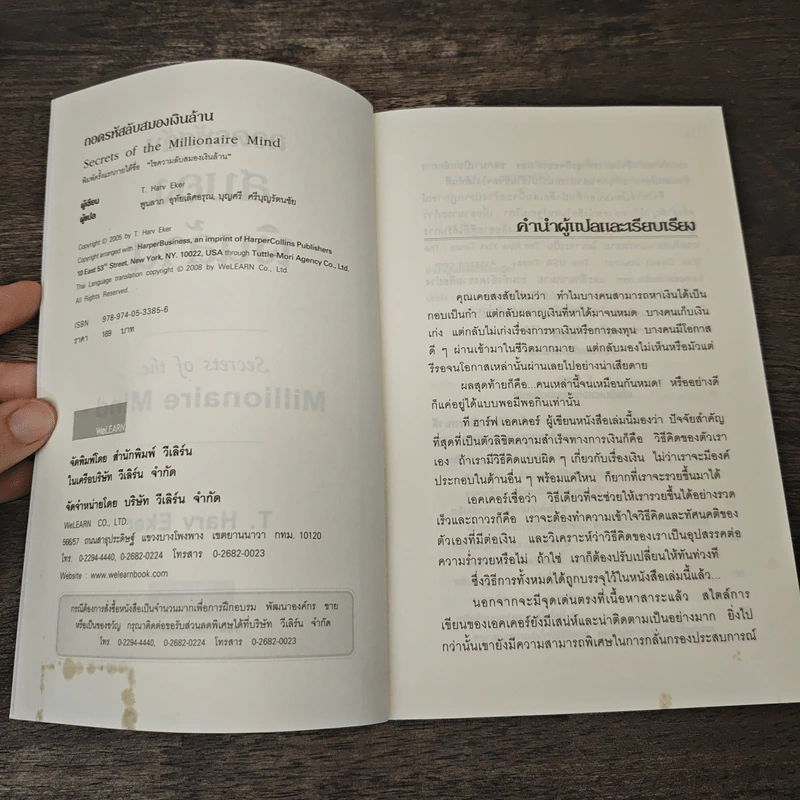 ถอดรหัสลับสมองเงินล้าน
Secrets of the Millionaire Mind
พิมพ์ครั้งแรกภายใต้ชื่อ "ไขความลับสมองเงินล้าน"
ผู้เขียน T. Harv Eker
ผู้แปล พูนลาภ อุทัยเลิศอรุณ, บุญศรี ศรีบุญรัตนชัย
Copyright © 2005 by T. Harv Eker
Copyright arranged with : HarperBusiness, an imprint of HarperCollins Publishers
10 East 53rd Street, New York, NY. 10022, USA through Tuttle-Mori Agency Co., Ltd.
Thai Language translation copyright © 2008 by WeLEARN Co., Ltd.
All Rights Reserved.
ISBN 978-974-05-3385-6
ราคา 169 บาท
WeLEARN
จัดพิมพ์โดย สำนักพิมพ์ วีเลิร์น
ในเครือบริษัท วีเลิร์น จำกัด
จัดจำหน่ายโดย บริษัท วีเลิร์น จำกัด
WeLEARN CO., LTD.
566/57 ถนนสาธุประดิษฐ์ แขวงบางโพงพาง เขตยานนาวา กทม. 10120
โทร. 0-2294-4440, 0-2682-0224 โทรสาร 0-2682-0023
Website : www.welearnbook.com
กรณีต้องการสั่งซื้อหนังสือเป็นจำนวนมากเพื่อการฝึกอบรม พัฒนาองค์กร ขาย
หรือเป็นของขวัญ กรุณาติดต่อขอรับส่วนลดพิเศษได้ที่บริษัท วีเลิร์น จำกัด
โทร. 0-2294-4440, 0-2682-0224 โทรสาร 0-2682-0023
คำนำผู้แปลและเรียบเรียง
คุณเคยสงสัยไหมว่า ทำไมบางคนสามารถหาเงินได้เป็น
กอบเป็นกำ แต่กลับผลาญเงินที่หาได้มาจนหมด บางคนเก็บเงิน
เก่ง แต่กลับไม่เก่งเรื่องการหาเงินหรือการลงทุน บางคนมีโอกาส
ดี ๆ ผ่านเข้ามาในชีวิตมากมาย แต่กลับมองไม่เห็นหรือมัวแต่
รีรอจนโอกาสเหล่านั้นผ่านเลยไปอย่างน่าเสียดาย
ผลสุดท้ายก็คือ...คนเหล่านี้จนเหมือนกันหมด! หรืออย่างดี
ก็แค่อยู่ได้แบบพอมีพอกินเท่านั้น
ที ฮาร์ฟ เอคเคอร์ ผู้เขียนหนังสือเล่มนี้มองว่า ปัจจัยสำคัญ
ที่สุดที่เป็นตัวลิขิตความสำเร็จทางการเงินก็คือ วิธีคิดของตัวเรา
เอง ถ้าเรามีวิธีคิดแบบผิด ๆ เกี่ยวกับเรื่องเงิน ไม่ว่าเราจะมีองค์
ประกอบในด้านอื่น ๆ พร้อมแค่ไหน ก็ยากที่เราจะรวยขึ้นมาได้
เอคเคอร์เชื่อว่า วิธีเดียวที่จะช่วยให้เรารวยขึ้นได้อย่างรวด
เร็วและถาวรก็คือ เราจะต้องทำความเข้าใจวิธีคิดและทัศนคติของ
ตัวเองที่มีต่อเงิน และวิเคราะห์ว่าวิธีคิดของเราเป็นอุปสรรคต่อ
ความร่ำรวยหรือไม่ ถ้าใช่ เราก็ต้องปรับเปลี่ยนให้ทันท่วงที
ซึ่งวิธีการทั้งหมดได้ถูกบรรจุไว้ในหนังสือเล่มนี้แล้ว...
นอกจากจะมีจุดเด่นตรงที่เนื้อหาสาระแล้ว สไตล์การ
เขียนของเอคเคอร์ยังมีเสน่ห์และน่าติดตามเป็นอย่างมาก ยิ่งไป
กว่านั้นเขายังมีความสามารถพิเศษในการกลั่นกรองประสบการณ์